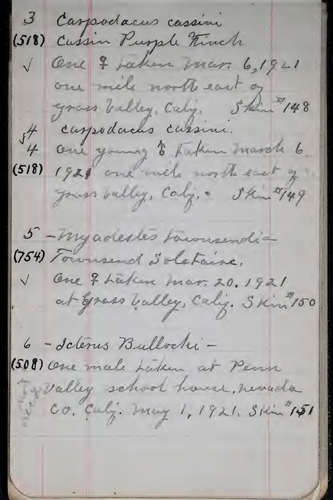 3 Carpodacus cassini
(518) Cassin Purple Finch
✓ One ♀ taken Mar. 6, 1921
one mile north east of
Grass Valley, Calif. Skin #148
4 Carpodacus cassini.
4 One young ♂ taken March 6
(518) 1921 one mile north east of
Grass Valley, Calif. Skin #149
5 - Myadestes townsendi -
(754) Townsend Solitaire.
✓ One ♀ taken Mar. 20. 1921
at Grass Valley, Calif. Skin #150
6 - Icterus Bullocki -
(508) One male taken at Penn
Valley school house, Nevada
Co. Calif. May 1, 1921. Skin #151